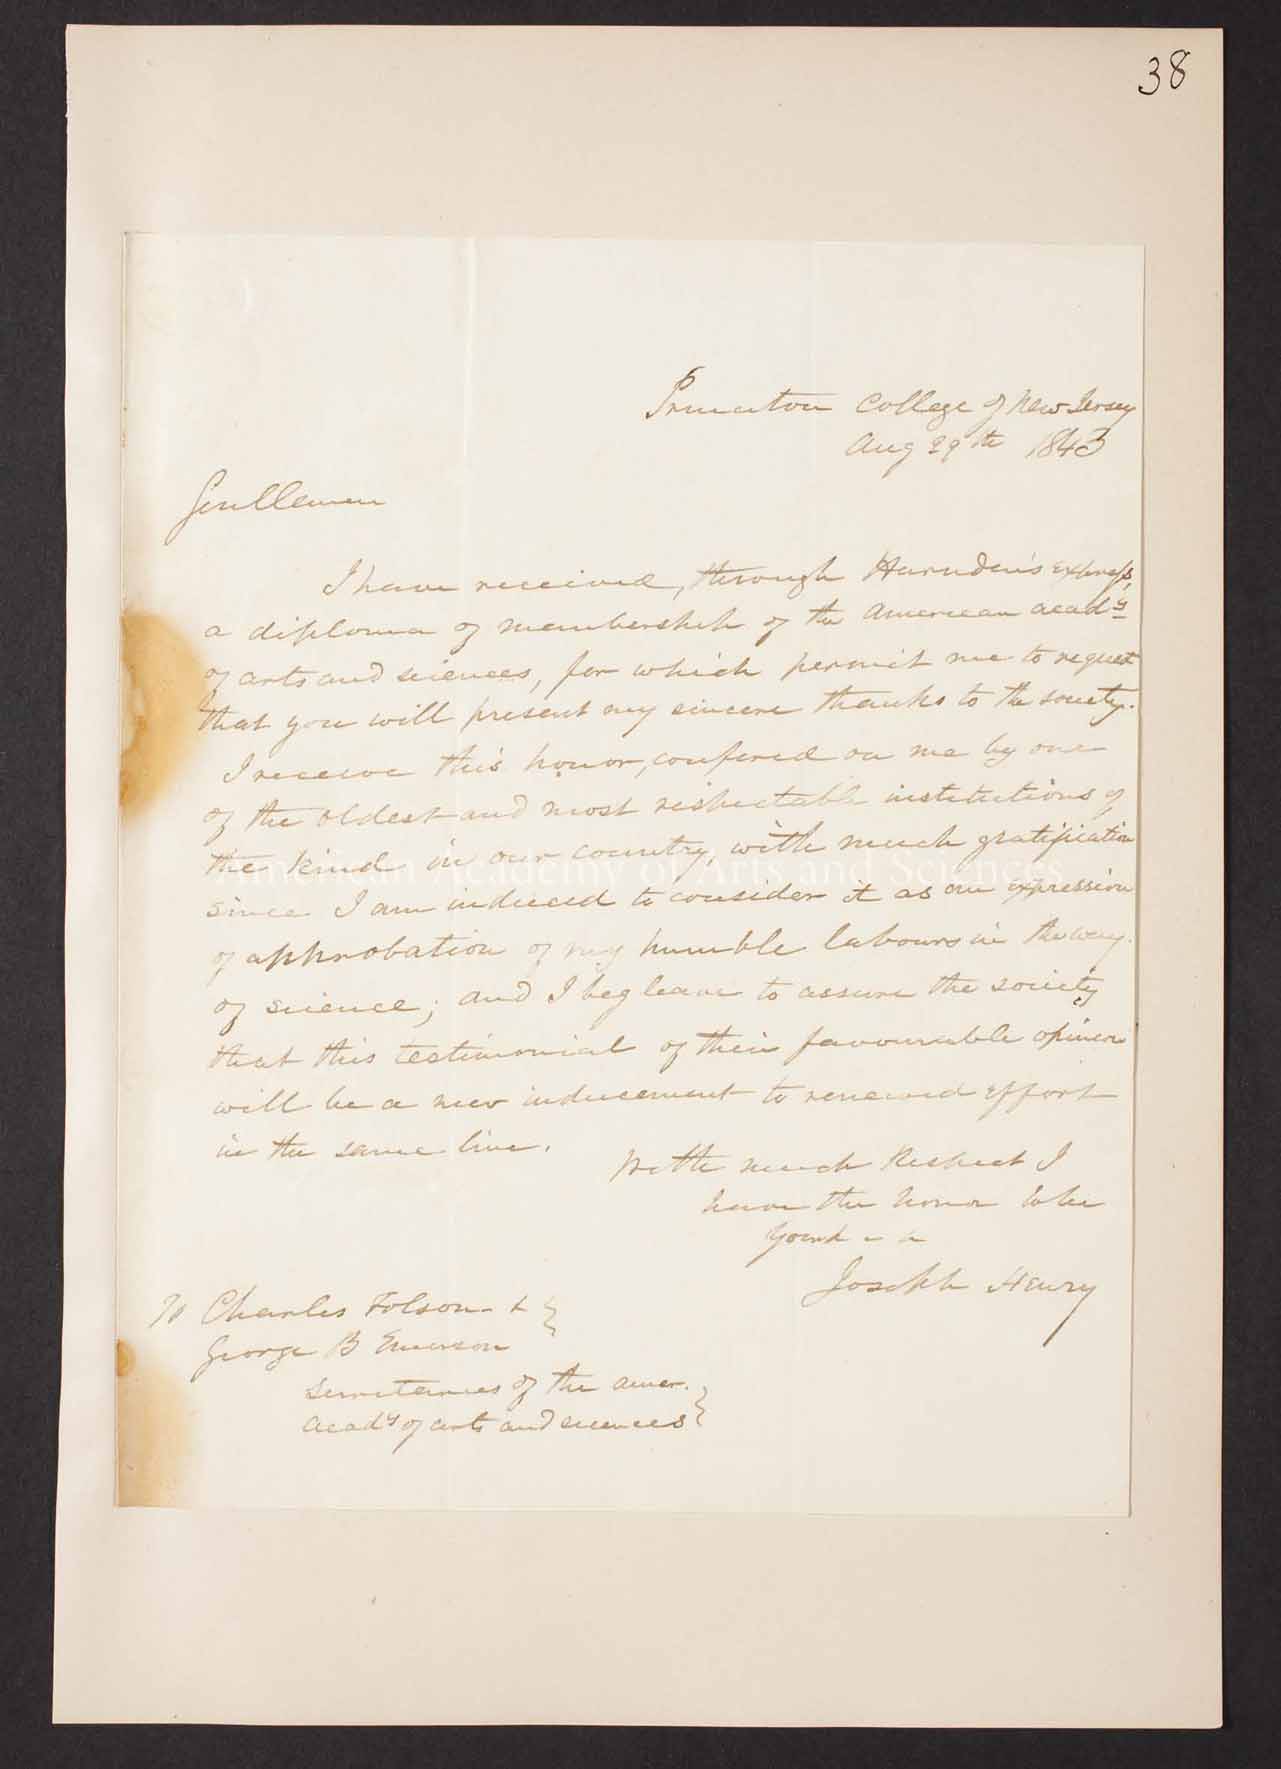 38
Princeton College of New Jersey
Aug 29th 1843
Gentlemen
I have received, through Harnden's express,
a diploma of membership of the American Acady
of arts and sciences, for which permit me to request
that you will present my sincere thanks to the society.
I receive this honor, confered on me by one
of the oldest and most respectable institutions of
the kind in our country, with much gratification
American Academy of Arts and Sciences
since I am induced to consider it as an expression
of approbation of my humble labours in the way
of science; and I beg leave to assure the society
that this testimonial of their favourable opinion
will be a new inducement to renewed effort
in the same line.
With much Respect I
have the honor to be
Joseph Henry
To Charles Folsom &
George B Emerson
Secretaries of the Amer.
Acady of arts and sciences